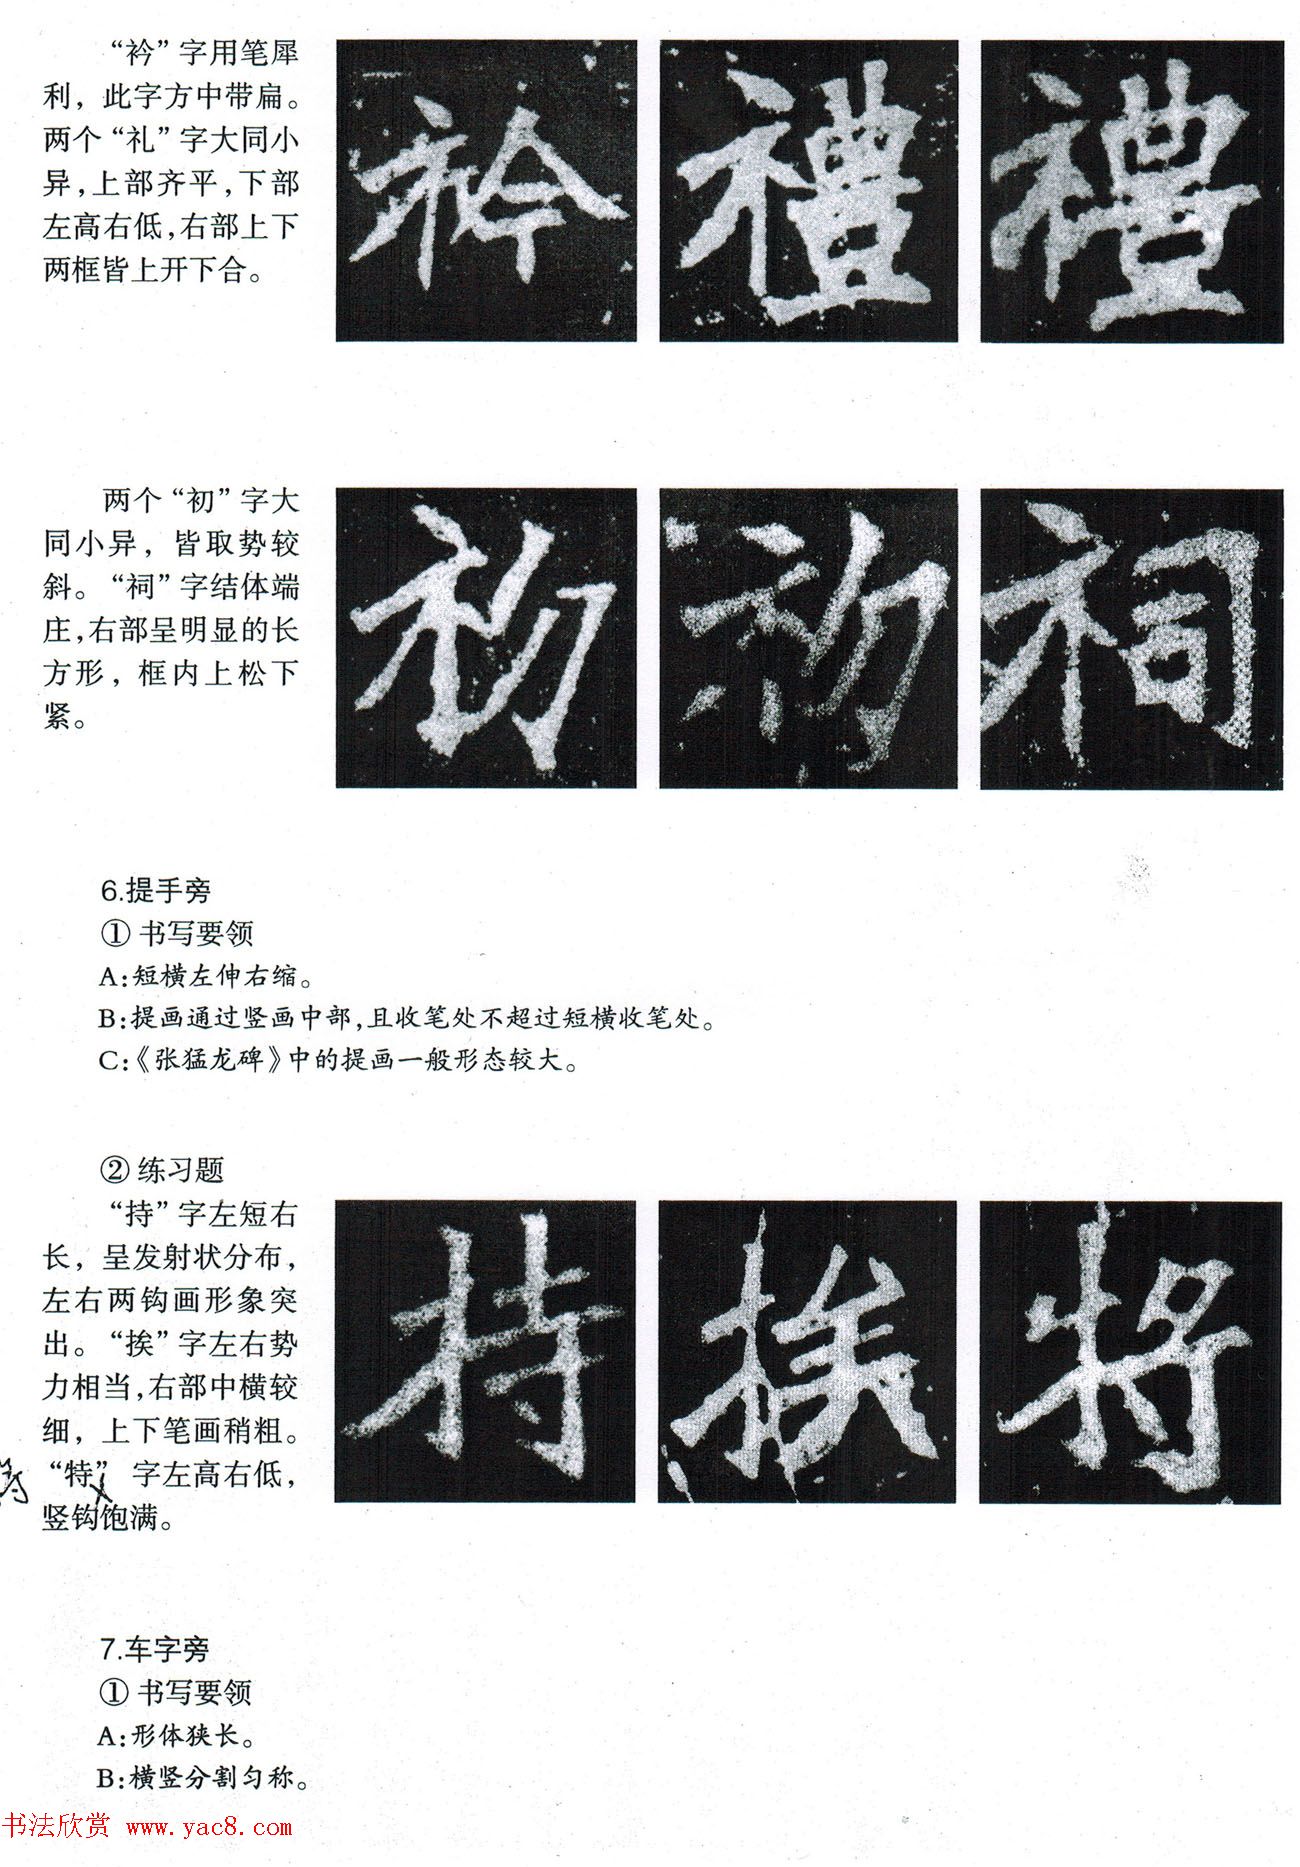 “衿”字用笔犀
利，此字方中带扁。
两个“礼”字大同小
异，上部齐平，下部
左高右低，右部上下
两框皆上开下合。
衿 禮 禮
两个“初”字大
同小异，皆取势较
斜。“祠”字结体端
庄，右部呈明显的长
方形，框内上松下
紧。
初 初 祠
6.提手旁
① 书写要领
A:短横左伸右缩。
B:提画通过竖画中部，且收笔处不超过短横收笔处。
C:《张猛龙碑》中的提画一般形态较大。
② 练习题
“持”字左短右
长，呈发射状分布，
左右两钩画形象突
出。“挨”字左右势
力相当，右部中横较
细，上下笔画稍粗。
“特”字左高右低，
竖钩饱满。
持 挨 将
7.车字旁
① 书写要领
A:形体狭长。
B:横竖分割匀称。
书法欣赏 www.yac8.com